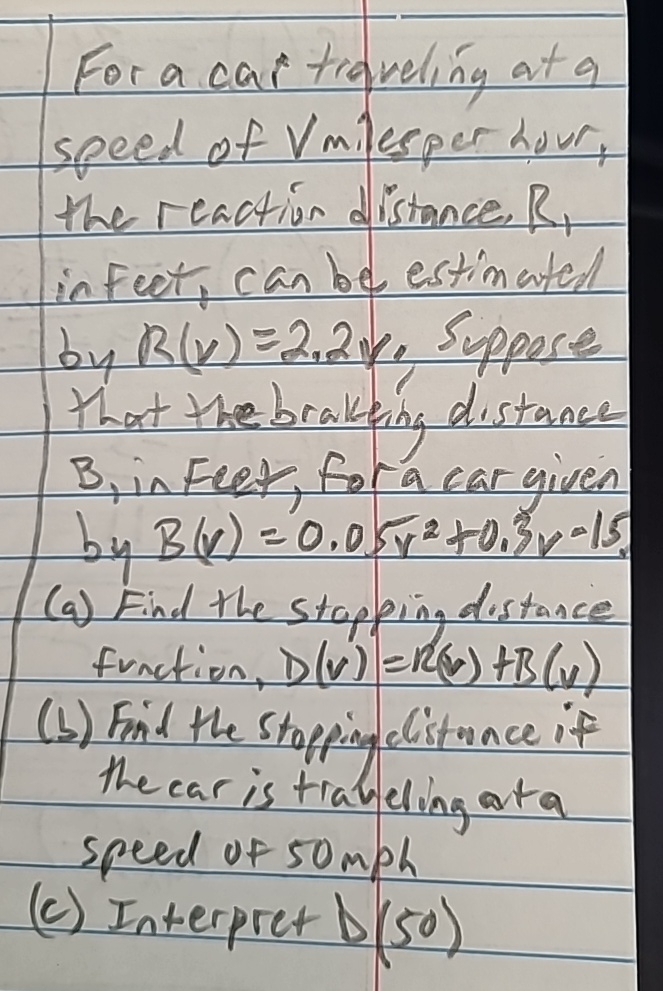 For a car traveling at a
speed of V miles per hour,
the reaction distance, R,
in feet, can be estimated
by R(v)=2.2v. Suppose
that the brakeing distance
B, in Feet, for a car given
by B(v) = 0.05v²+0.3v-15.
(a) Find the stopping distance
function, D(v)=R(v)+B(v)
(b) Find the stopping distance if
the car is traveling at a
speed of 50 mph
(c) Interpret D(50)